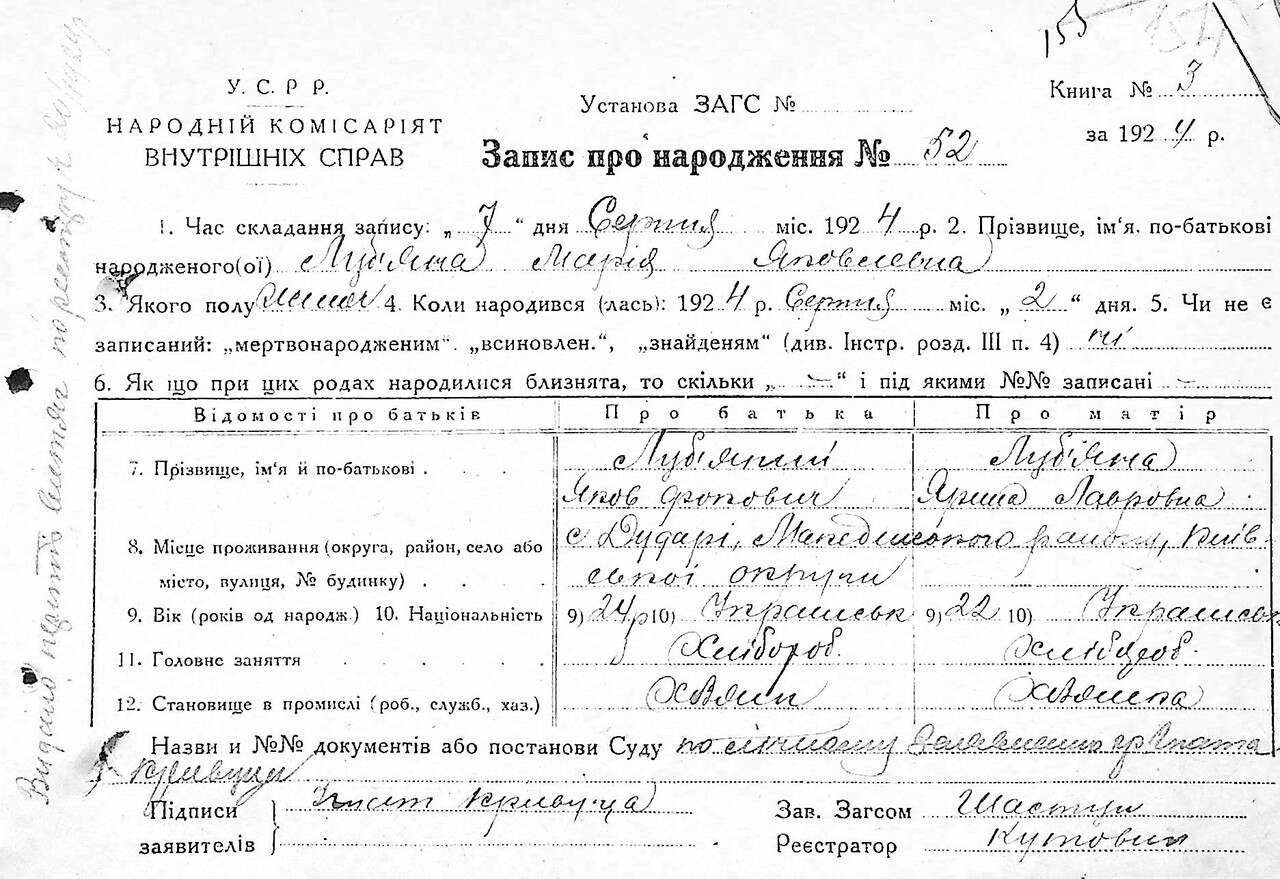 155 154
У. С. Р Р.
НАРОДНІЙ КОМІСАРІЯТ
ВНУТРІШНІХ СПРАВ
Установа ЗАГС №
Запис про народження № 52
Книга № 3
за 1924 р.
1. Час складання запису: „ 7 “ дня Серпня міс. 1924 р. 2. Прізвище, ім‘я. по-батькові
народженого(ої) Луб'яна Марія Яковлевна
3. Якого полу жіноч 4. Коли народився (лась): 1924 р. Серпня міс. „ 2 “ дня. 5. Чи не є
записаний: „мертвонародженим“. „всиновлен.“, „знайденям“ (див. Інстр. розд. III п. 4) ні
6. Як що при цих родах народилися близнята, то скільки „ — “ і під якими №№ записані —
Відомості про батьків Про батька Про матір
7. Прізвище, ім‘я й по-батькові . . . Луб'яний Луб'яна
Яков Фокович Ярина Лавровна
8. Місце проживання (округа, район, село або с Дударі, Македонського району, Київ-
місто, вулиця, № будинку) . . . ської округи
9. Вік (років од народж.) 10. Національність 9) 24 р 10) Українськ 9) 22 10) Українськ
11. Головне заняття . . . . Хлібороб. Хлібороб.
12. Становище в промислі (роб., служб., хаз.) Хазяин Хазяйка
Назви и №№ документів або постанови Суду по слічному заявленню гр Гната
Кривуци
Підписи Гнат Кривуца
заявителів
Зав. Загсом
Реєстратор Кутовий
Видано витяг